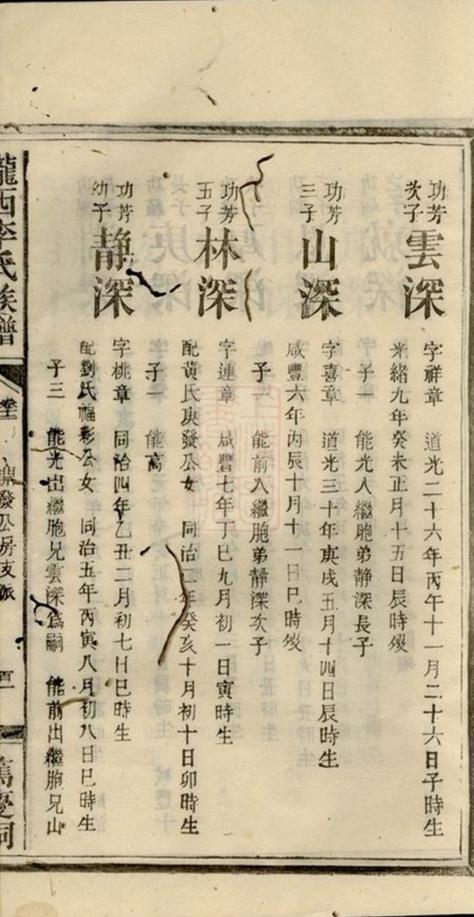 功芳次子
雲深
字祥章　道光二十六年丙午十一月二十六日子時生
光緒九年癸未正月十五日辰時歿
子一　能光入繼胞弟靜深長子
功芳三子
山深
字喜章　道光三十年庚戌五月十四日辰時生
咸豐六年丙辰十月十一日巳時歿
子一　能前入繼胞弟靜深次子
功芳五子
林深
字連章　咸豐七年丁巳九月初一日寅時生
配黃氏庚發公女　同治二年癸亥十月初十日卯時生
子一　能高
功芳幼子
靜深
字桃章　同治四年乙丑二月初七日巳時生
配劉氏幅彩公女　同治五年丙寅八月初八日巳時生
子三　能光出繼胞兄雲深爲嗣　能前出繼胞兄山
隴西李氏族譜
發公房支派
篤慶祠